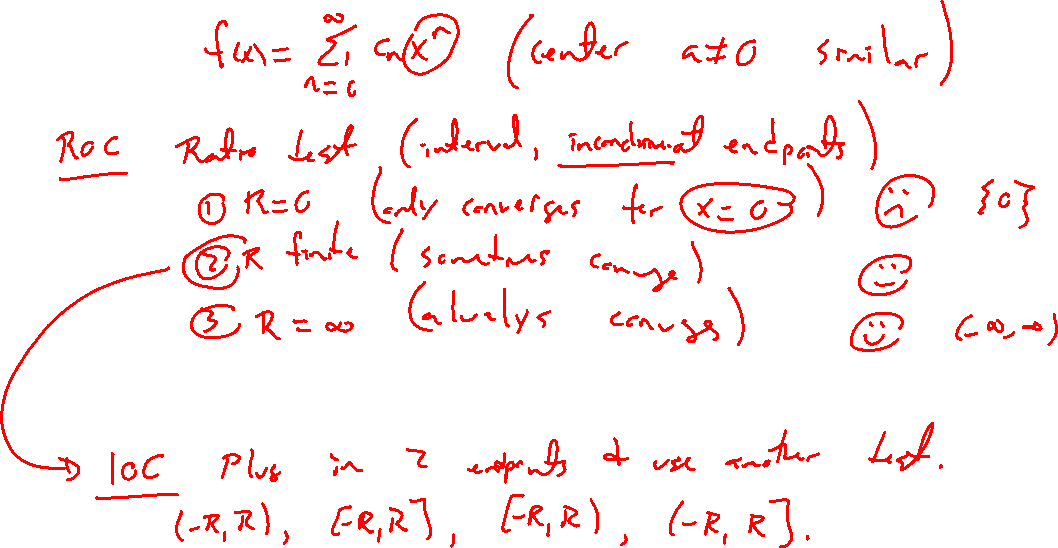 f(x) = ∑_{n=0}^{∞} c_n x^n (center a≠0 similar)
ROC Ratio test (interval, inconclusive at endpoints)
① R=0 (only converges for x=0) ☹ {0}
② R finite (sometimes converge) ☺
③ R=∞ (always converges) ☺ (-∞,∞)
IOC Plug in 2 endpoints & use another test.
(-R,R), [-R,R], [-R,R), (-R,R].